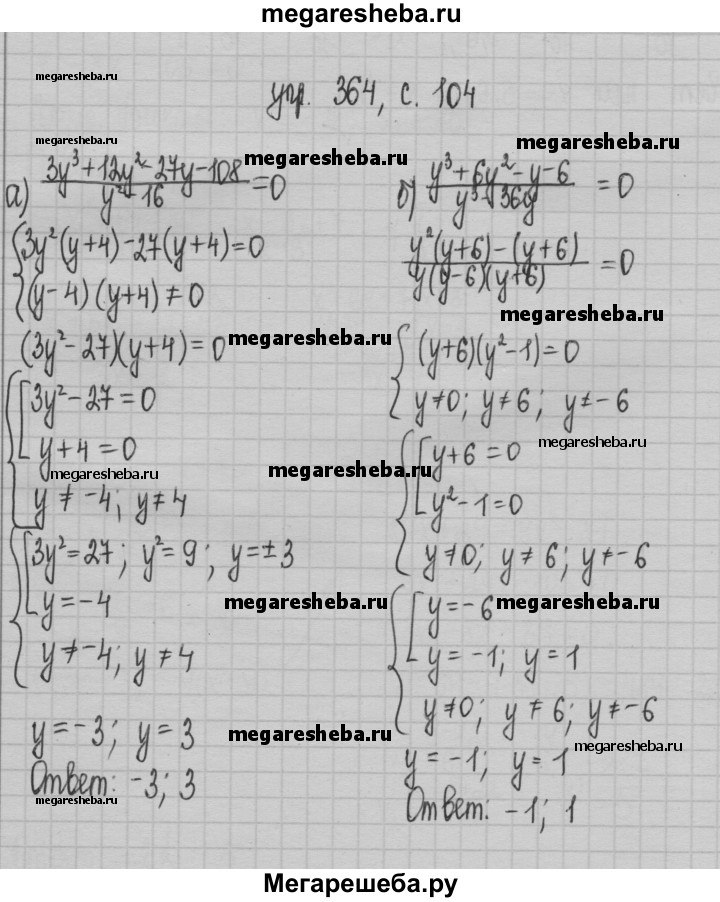 megaresheba.ru
megaresheba.ru
упр. 364, с. 104
megaresheba.ru
megaresheba.ru
megaresheba.ru
а) (3y³+12y²-27y-108)/(y²-16)=0
{3y²(y+4)-27(y+4)=0
(y-4)(y+4)≠0
(3y²-27)(y+4)=0
megaresheba.ru
{[3y²-27=0
y+4=0
megaresheba.ru
y≠-4; y≠4
{[3y²=27; y²=9; y=±3
y=-4
megaresheba.ru
y≠-4; y≠4
y=-3; y=3
megaresheba.ru
Ответ: -3; 3
megaresheba.ru
б) (y³+6y²-y-6)/(y³-36y)=0
(y²(y+6)-(y+6))/(y(y-6)(y+6))=0
megaresheba.ru
{(y+6)(y²-1)=0
y≠0; y≠6; y≠-6
megaresheba.ru
{[y+6=0
megaresheba.ru
y²-1=0
y≠0; y≠6; y≠-6
{[y=-6
megaresheba.ru
y=-1; y=1
y≠0; y≠6; y≠-6
megaresheba.ru
y=-1; y=1
Ответ: -1; 1
Мегарешеба.ру